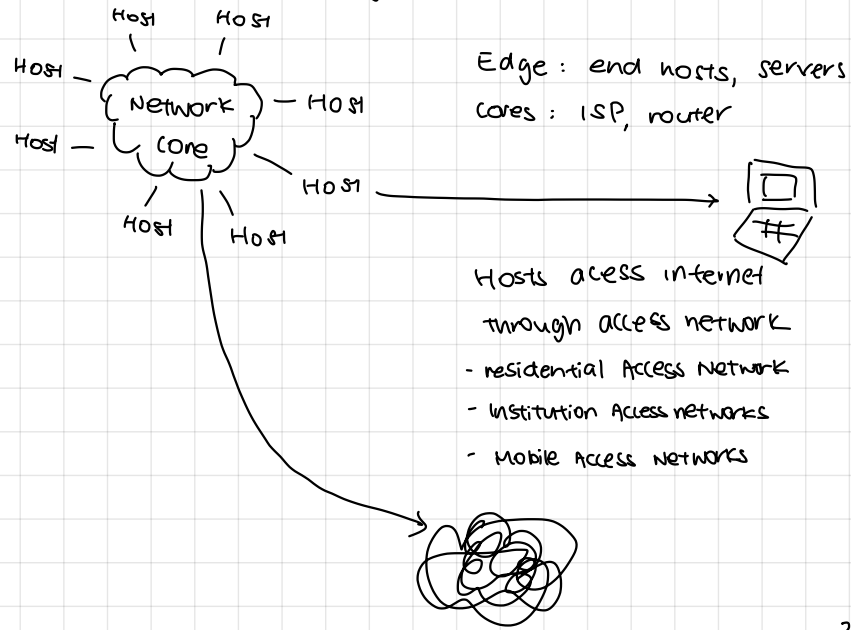 Host
Host
Host
Network
Host
Core
Host
Host
Host
Host
Edge : end hosts, servers
Cores : ISP, router
Hosts acess internet
through access network
- residential Access Network
- Institution Access networks
- Mobile Access Networks